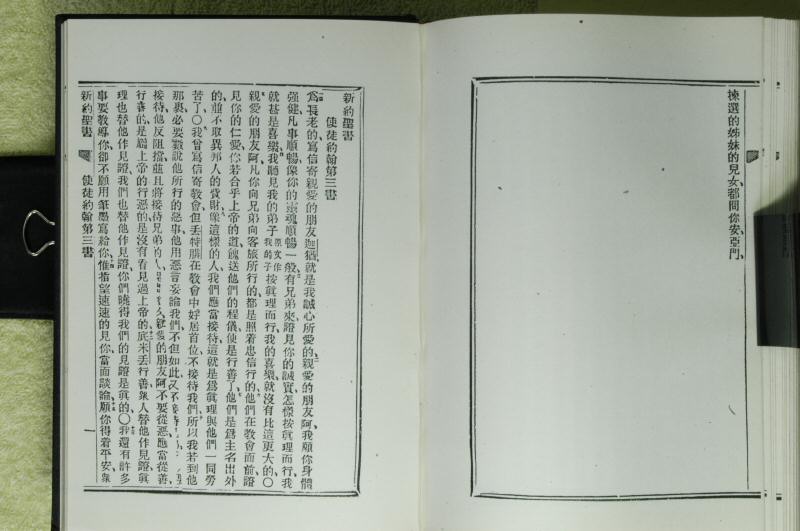 揀選的姊妹的兒女、都問你安、亞門、
新約聖書
使徒約翰第三書
爲長老的寫信寄親愛的朋友迦猶、就是我誠心所愛的、親愛的朋友阿、我願你身體
強健、凡事順暢、像你的靈魂順暢一般、有兄弟來、證見你的誠實、怎樣按眞理而行、我
就甚是喜樂、我聽見我的弟子原文作我的兒子按眞理而行、我的喜樂、就沒有比這更大的、〇
親愛的朋友阿、凡你向兄弟向客旅所行的、都是照着忠信行的、他們在教會面前、證
見你的仁愛、你若合乎上帝的道、餽送他們的程儀、便是行善了、他們是爲主名出外
的、並不取異邦人的貲財、像這樣的人、我們應當接待、這就是爲眞理與他們一同勞
苦了、〇我曾寫信寄教會、但丟特腓在教會中好居首位、不接待我們、所以我若到他
那裏、必要數說他所行的惡事、他用惡言妄論我們、不但如此、又不接待
接待、他反阻擋、並且將接待兄弟的人 親愛的朋友阿、不要從惡、應當從善、
行善的、是屬上帝的、行惡的、是沒有看見過上帝的、底米丟行善、衆人替他作見證、眞
理也替他作見證、我們也替他作見證、你們曉得我們的見證是眞的、〇我還有許多
事要教導你、卻不願用筆墨寫給你、惟指望速速的見你、當面談論、願你得着平安、衆
新約聖書 使徒約翰第三書 一